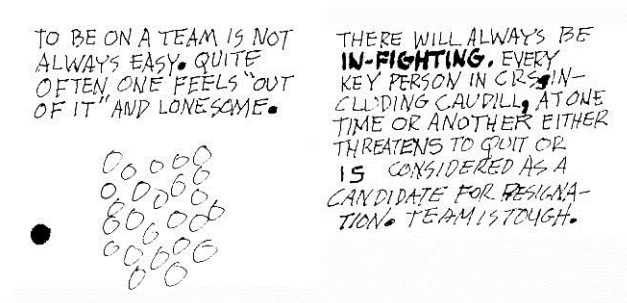 TO BE ON A TEAM IS NOT
ALWAYS EASY. QUITE
OFTEN ONE FEELS "OUT
OF IT" AND LONESOME.
THERE WILL ALWAYS BE
IN-FIGHTING. EVERY
KEY PERSON IN CRS, IN-
CLUDING CAUDILL, AT ONE
TIME OR ANOTHER EITHER
THREATENS TO QUIT OR
IS CONSIDERED AS A
CANDIDATE FOR RESIGNA-
TION. TEAM IS TOUGH.